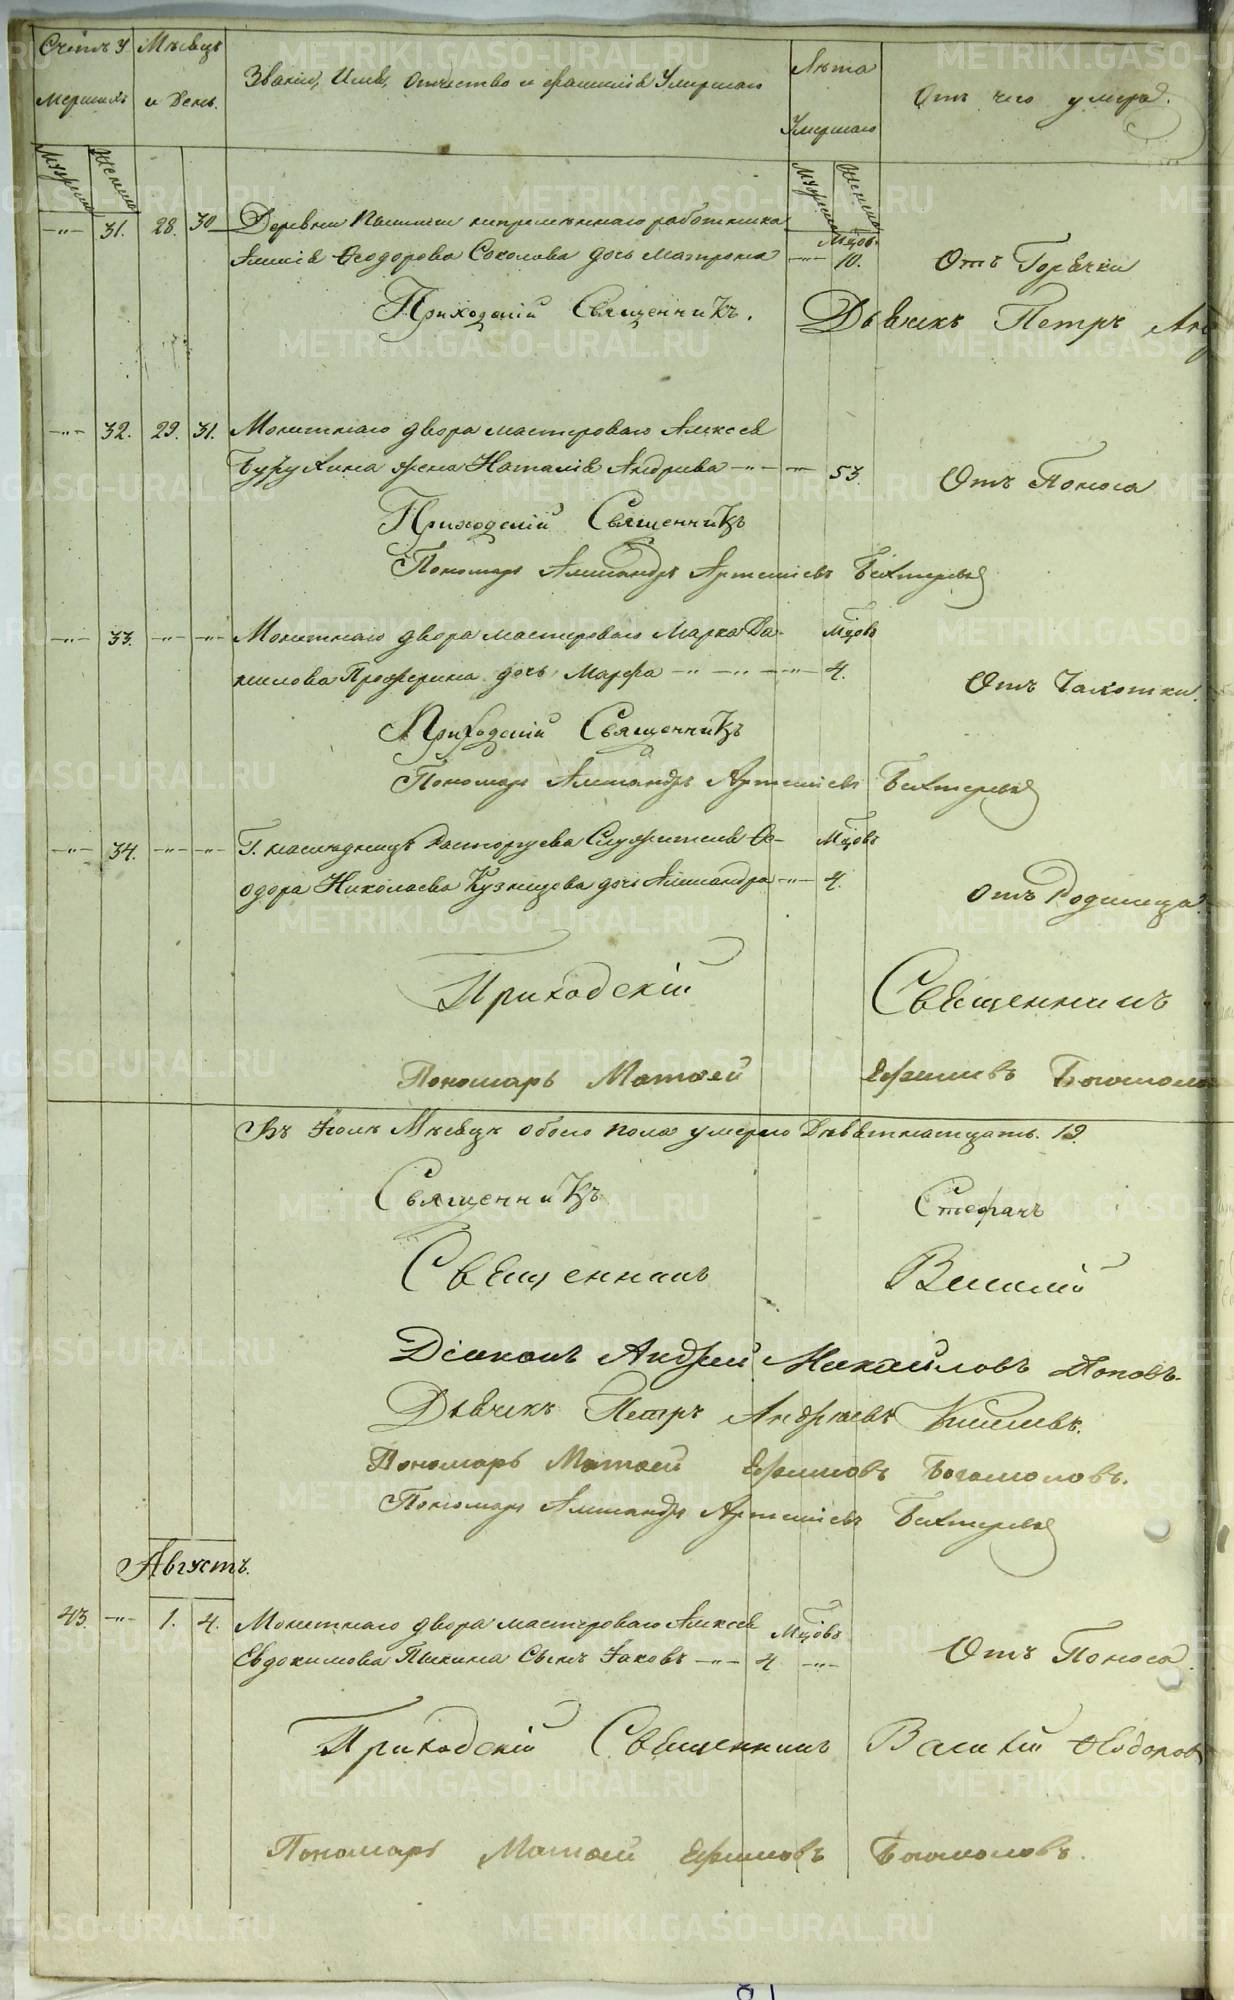 Счетъ У Мѣсяцъ Званіе, Имя, Отчество и фамилія Умершаго Лѣта Отъ чего умеръ.
мершихъ и День. Умершаго
Мужеска Женска Мужеска Женска
31. 28. 30 Деревни непремѣннаго работника Мцов.
Ѳеодорова Соколова дочь Матрона 10. Отъ Горячки
Приходскій Священникъ. Дьячекъ Петръ
32. 29. 31. Монетнаго двора мастероваго Алексея
жена Наталія Андреева 53. Отъ Поноса
Приходскій Священникъ
Пономарь Александръ Артеміевъ Бехтеревъ
33. Монетнаго двора мастероваго Марка Да- Мцовъ
нилова дочь Марфа 4. Отъ Чахотки.
Приходскій Священникъ
Пономарь Александръ Артеміевъ Бехтеревъ
34. Г. наследницъ Расторгуева Служителя Ѳе- Мцовъ
одора Николаева Кузнецова дочь Александра 4. Отъ Родимца.
Приходскій Священникъ
Пономарь Матѳей Ефимовъ
Въ Іюлѣ Мѣсяцѣ обоего пола умерло Девятнатцать. 19.
Священникъ Стефанъ
Священникъ Василій
Діаконъ Андрей Михайловъ Поповъ.
Дьячекъ Петръ Андреевъ
Пономарь Матѳей Ефимовъ Богомоловъ.
Пономарь Александръ Артеміевъ Бехтеревъ
Августъ.
43. 1. 4. Монетнаго двора мастероваго Алексея Мцовъ
Евдокимова Пькина Сынъ Іаковъ 4 Отъ Поноса.
Приходскій Священникъ Василій Ѳеодоровъ
Пономарь Матѳей Ефимовъ Богомоловъ.
METRIKI.GASO-URAL.RU